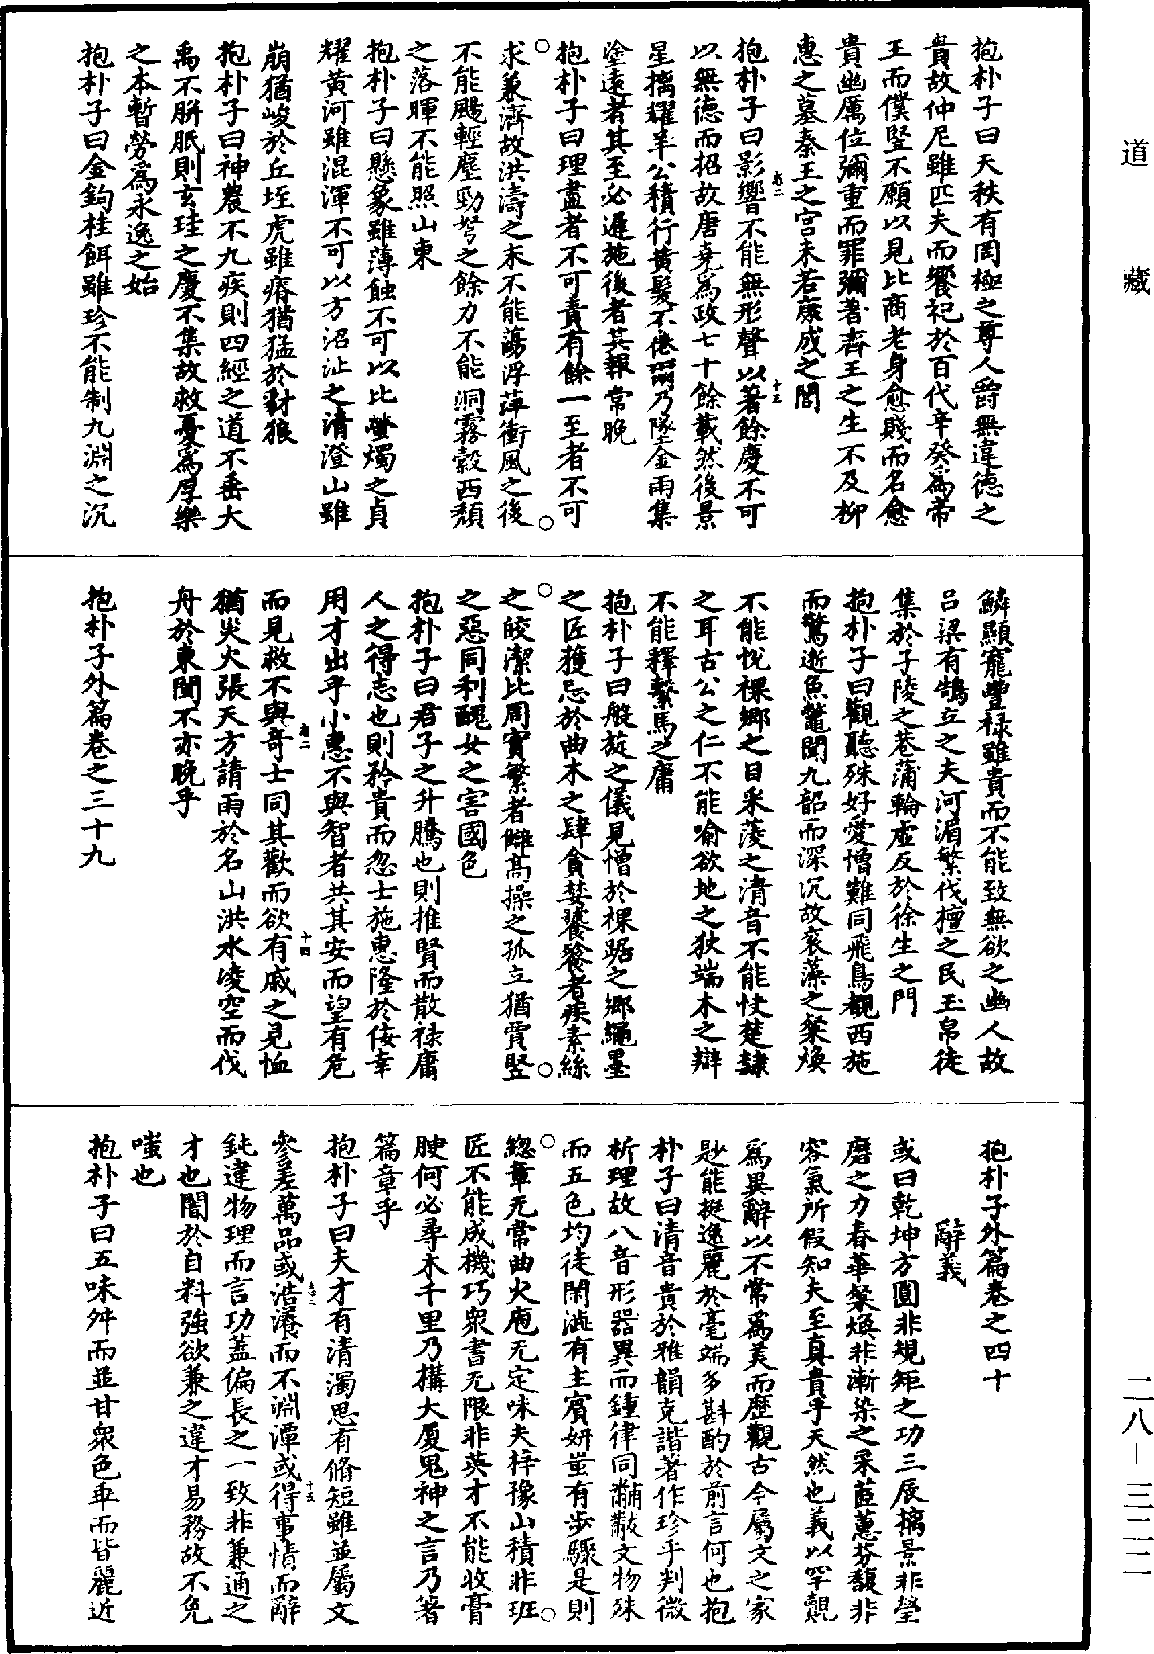 道藏
抱朴子曰天秩有罔極之尊人爵無違德之
貴故仲尼雖匹夫而饗祀於百代辛癸為帝
王而僕豎不願以見比商老身愈賤而名愈
貴幽厲位彌重而罪彌著齊王之生不及柳
惠之墓秦王之宮未若康成之閭
抱朴子曰影響不能無形聲以著餘慶不可
以無德而招故唐堯為政七十餘載然後景
星摛耀羊公積行黃髮不倦而乃墜金雨集
塗遠者其至必遲施後者其報常晚
抱朴子曰理盡者不可責有餘一至者不可
求兼濟故洪濤之末不能蕩浮萍衝風之後
不能颺輕塵勁弩之餘力不能洞霧縠西頹
之落暉不能照山東
抱朴子曰懸象雖薄蝕不可以比螢燭之貞
耀黃河雖混渾不可以方沼沚之清澄山雖
崩猶峻於丘垤虎雖瘠猶猛於豺狼
抱朴子曰神農不九疾則四經之道不垂大
禹不胼胝則玄珪之慶不集故救憂為厚樂
之本暫勞為永逸之始
抱朴子曰金鉤桂餌雖珍不能制九淵之沉
鱗顯寵豐祿雖貴而不能致無欲之幽人故
呂梁有鵠立之夫河湄繁伐檀之民玉帛徒
集於子陵之巷蒲輪虛反於徐生之門
抱朴子曰觀聽殊好愛憎難同飛鳥覩西施
而驚逝魚鼈聞九韶而深沉故袞藻之粲煥
不能悅裸鄉之目采菱之清音不能快楚隸
之耳古公之仁不能喻欲地之狄端木之辯
不能釋繫馬之庸
抱朴子曰般旋之儀見憎於裸踞之鄉繩墨
之匠獲忌於曲木之肆貪婪饕餮者疾素絲
之皎潔比周實繁者讎高操之孤立猶賈豎
之惡同利醜女之害國色
抱朴子曰君子之升騰也則推賢而散祿庸
人之得志也則矜貴而忽士施惠隆於佞幸
用才出乎小惠不與智者共其安而望有危
而見救不與奇士同其歡而欲有戚之見恤
猶災火張天方請雨於名山洪水凌空而伐
舟於東閩不亦晚乎
抱朴子外篇卷之三十九
抱朴子外篇卷之四十
辭義
或曰乾坤方圓非規矩之功三辰摛景非瑩
磨之力春華粲煥非漸染之采茝蕙芬馥非
容氣所假知夫至真貴乎天然也義以罕覿
為異辭以不常為美而歷觀古今屬文之家
尠能挺逸麗於毫端多斟酌於前言何也抱
朴子曰清音貴於雅韻克諧著作珍乎判微
析理故八音形器異而鍾律同黼黻文物殊
而五色均徒閑澁有主賓妍蚩有步驟是則
緫章无常曲大庖无定味夫梓豫山積非班
匠不能成機巧衆書无限非英才不能收膏
腴何必尋木千里乃搆大厦鬼神之言乃著
篇章乎
抱朴子曰夫才有清濁思有脩短雖並屬文
參差萬品或浩瀁而不淵潭或得事情而辭
鈍違物理而言功蓋偏長之一致非兼通之
才也闇於自料強欲兼之違才易務故不免
嗤也
抱朴子曰五味舛而並甘衆色乖而皆麗近
二八—三二二